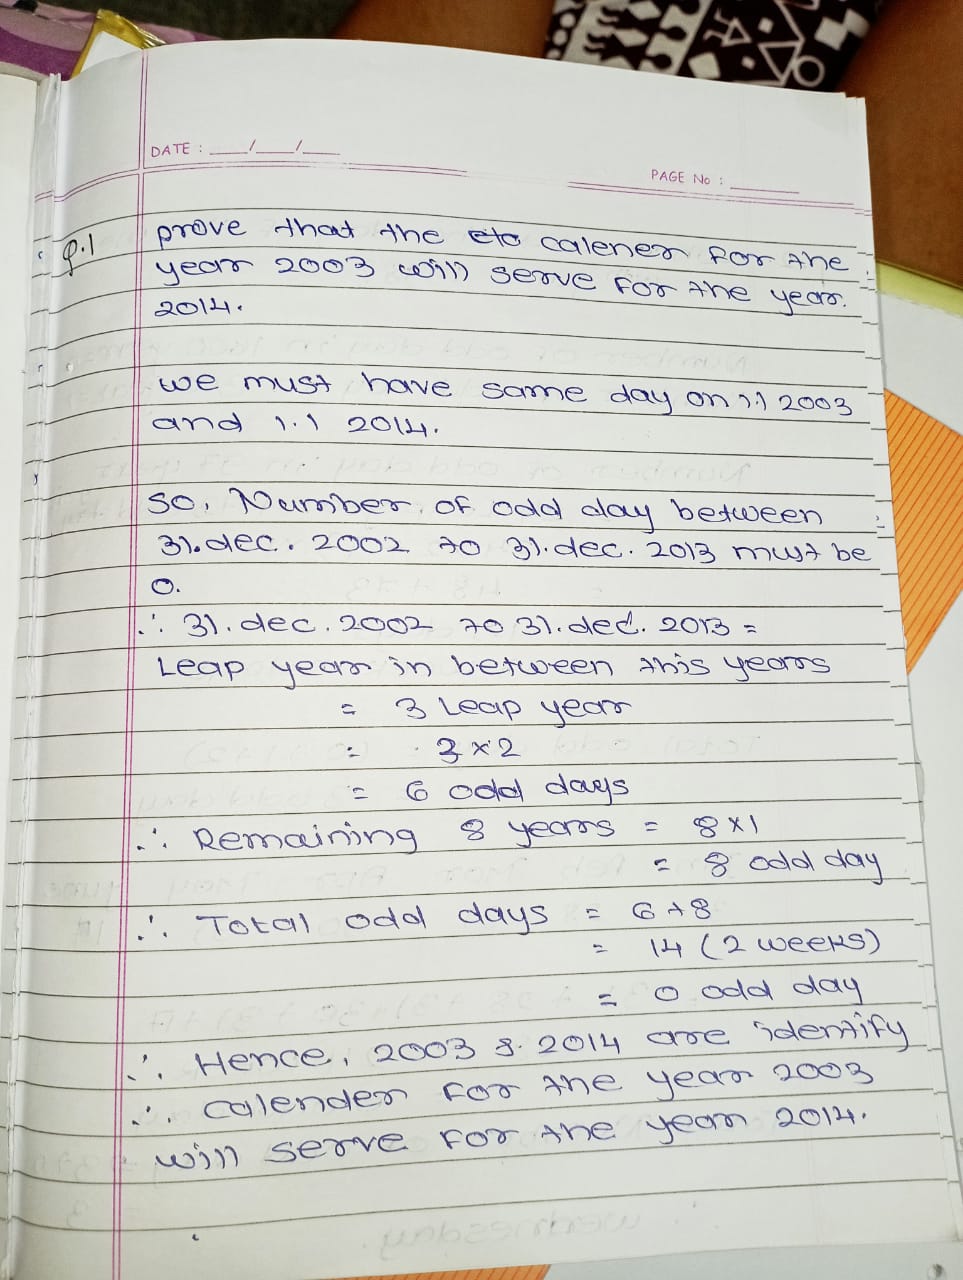 DATE : __/__/__
PAGE No : ______
Q.1 prove that the calener for the
year 2003 will serve for the year.
2014.
we must have same day on 1.1 2003
and 1.1 2014.
So, Number of odd day between
31.dec. 2002 to 31.dec. 2013 must be
0.
∴ 31.dec.2002 to 31.dec. 2013 =
Leap year in between this years
= 3 Leap year
= 3 x 2
= 6 odd days
∴ Remaining 8 years = 8 x 1
= 8 odd day
∴ Total odd days = 6 + 8
= 14 (2 weeks)
= 0 odd day
∴ Hence, 2003 & 2014 are identify
∴ calender for the year 2003
will serve for the year 2014.